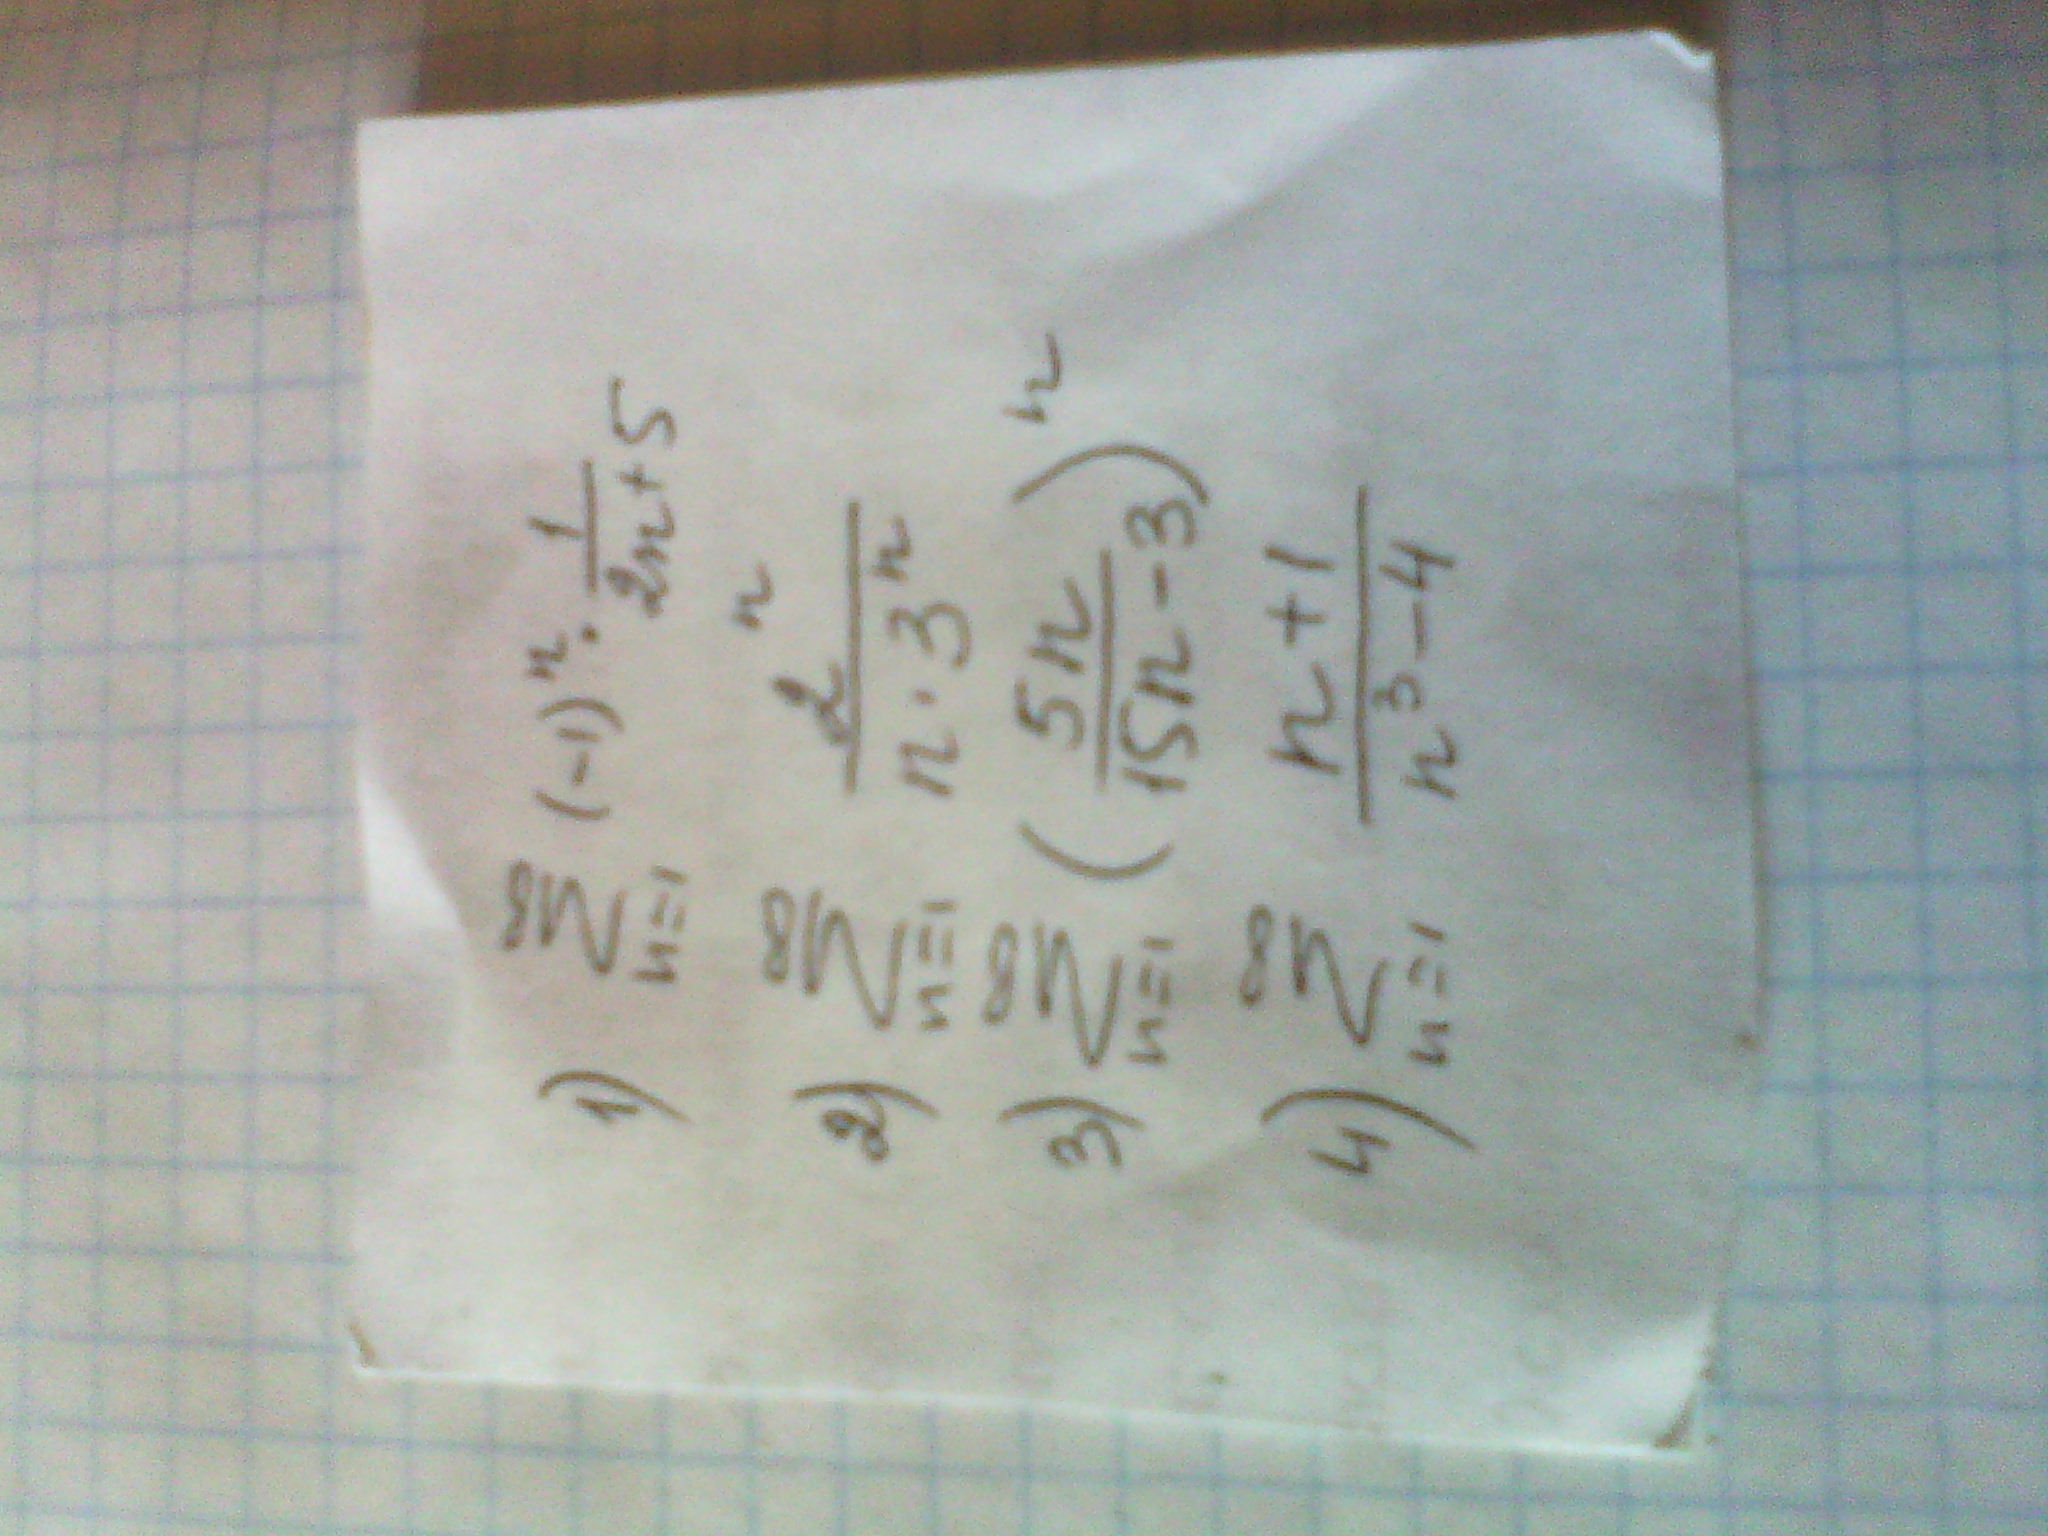 1) \sum_{n=1}^{\infty} (-1)^n \cdot \frac{1}{2n+5}
2) \sum_{n=1}^{\infty} \frac{2^n}{n \cdot 3^n}
3) \sum_{n=1}^{\infty} \left( \frac{5n}{15n-3} \right)^n
4) \sum_{n=1}^{\infty} \frac{n+1}{n^3-4}